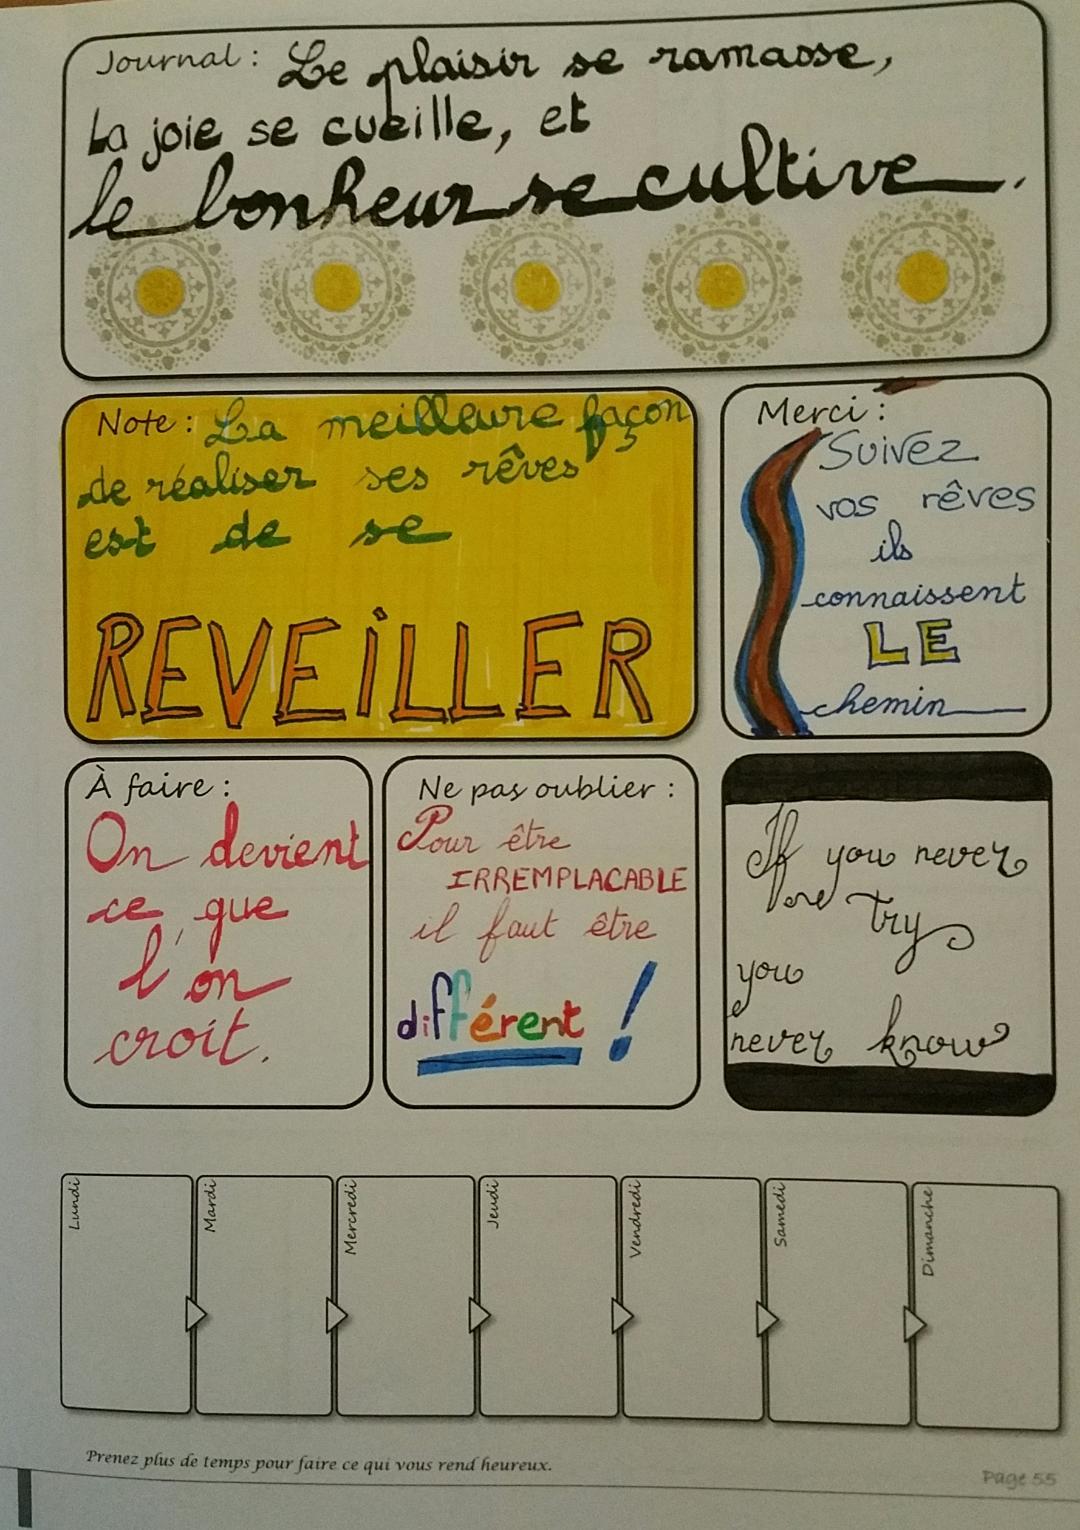 Journal : Le plaisir se ramasse,
La joie se cueille, et
le bonheur se cultive.
Note : La meilleure façon
de réaliser ses rêves
est de se
REVEILLER
Merci :
Suivez
vos rêves
ils
connaissent
LE
chemin
À faire :
On devient
ce que
l'on
croit.
Ne pas oublier :
Pour être
IRREMPLACABLE
il faut être
différent !
If you never
try
you
never know
Lundi
Mardi
Mercredi
Jeudi
Vendredi
Samedi
Dimanche
Prenez plus de temps pour faire ce qui vous rend heureux.
Page 55